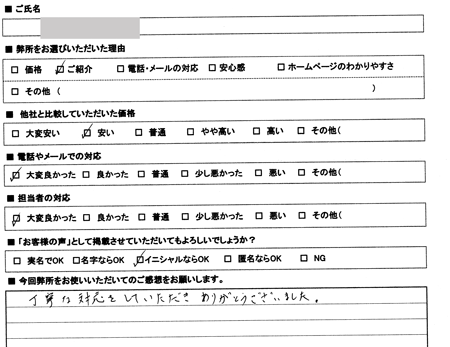 ■ ご氏名
■ 弊所をお選びいただいた理由
□ 価格 ☑ ご紹介 □ 電話・メールの対応 □ 安心感 □ ホームページのわかりやすさ
□ その他（ ）
■ 他社と比較していただいた価格
□ 大変安い ☑ 安い □ 普通 □ やや高い □ 高い □ その他（
■ 電話やメールでの対応
☑ 大変良かった □ 良かった □ 普通 □ 少し悪かった □ 悪い □ その他（
■ 担当者の対応
☑ 大変良かった □ 良かった □ 普通 □ 少し悪かった □ 悪い □ その他（
■ 「お客様の声」として掲載させていただいてもよろしいでしょうか？
□ 実名でOK □ 名字ならOK ☑ イニシャルならOK □ 匿名ならOK □ NG
■ 今回弊所をお使いいただいてのご感想をお願いします。
丁寧な対応をしていただきありがとうございました。